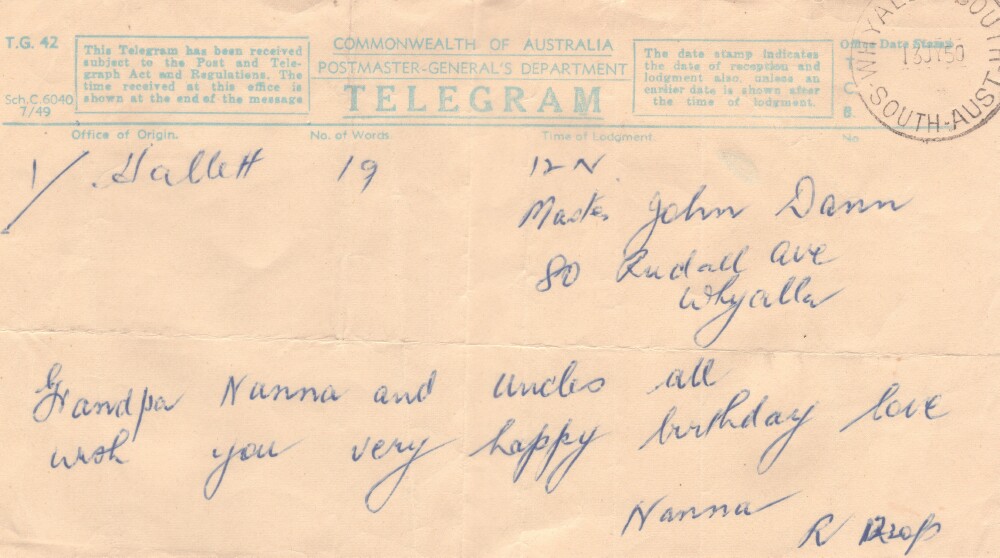 T.G. 42
Sch.C.6040
7/49
This Telegram has been received
subject to the Post and Tele-
graph Act and Regulations. The
time received at this office is
shown at the end of the message
COMMONWEALTH OF AUSTRALIA
POSTMASTER-GENERAL'S DEPARTMENT
TELEGRAM
The date stamp indicates
the date of reception and
lodgment also, unless an
earlier date is shown after
the time of lodgment.
Office Date Stamp
WHYALLA SOUTH
SOUTH-AUST
Office of Origin. No. of Words. Time of Lodgment. No.
1/ Hallett 19 12 N
Master John Dann
80 Rudall Ave
Whyalla
Grandpa Nanna and uncles all
wish you very happy birthday love
Nanna
R